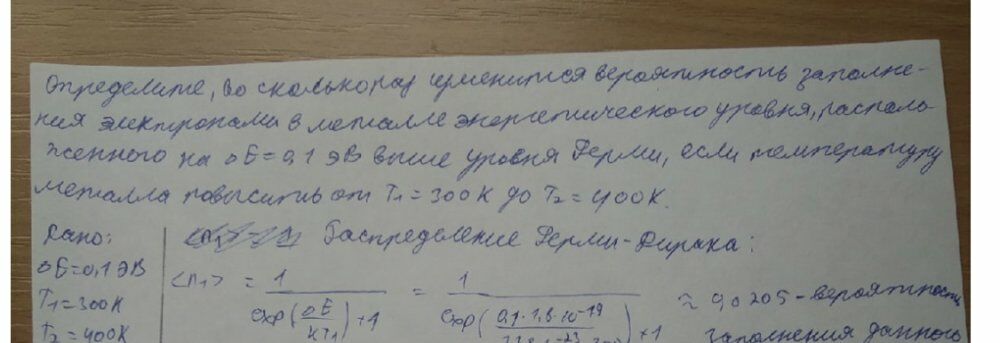 Определите, во сколько раз изменится вероятность заполне-
ния электронами в металле энергетического уровня, располо-
женного на ΔE = 0,1 эВ выше уровня Ферми, если температуру
металла повысить от T₁ = 300 К до T₂ = 400 К.
Дано: Распределение Ферми-Дирака:
ΔE = 0,1 эВ
<n₁> = 1 / (exp(ΔE / kT₁) + 1) = 1 / (exp(0,1 · 1,6 · 10⁻¹⁹ / 10⁻²³) + 1) ≈ 0,0205 - вероятность
T₁ = 300 К
T₂ = 400 К заполнения данного